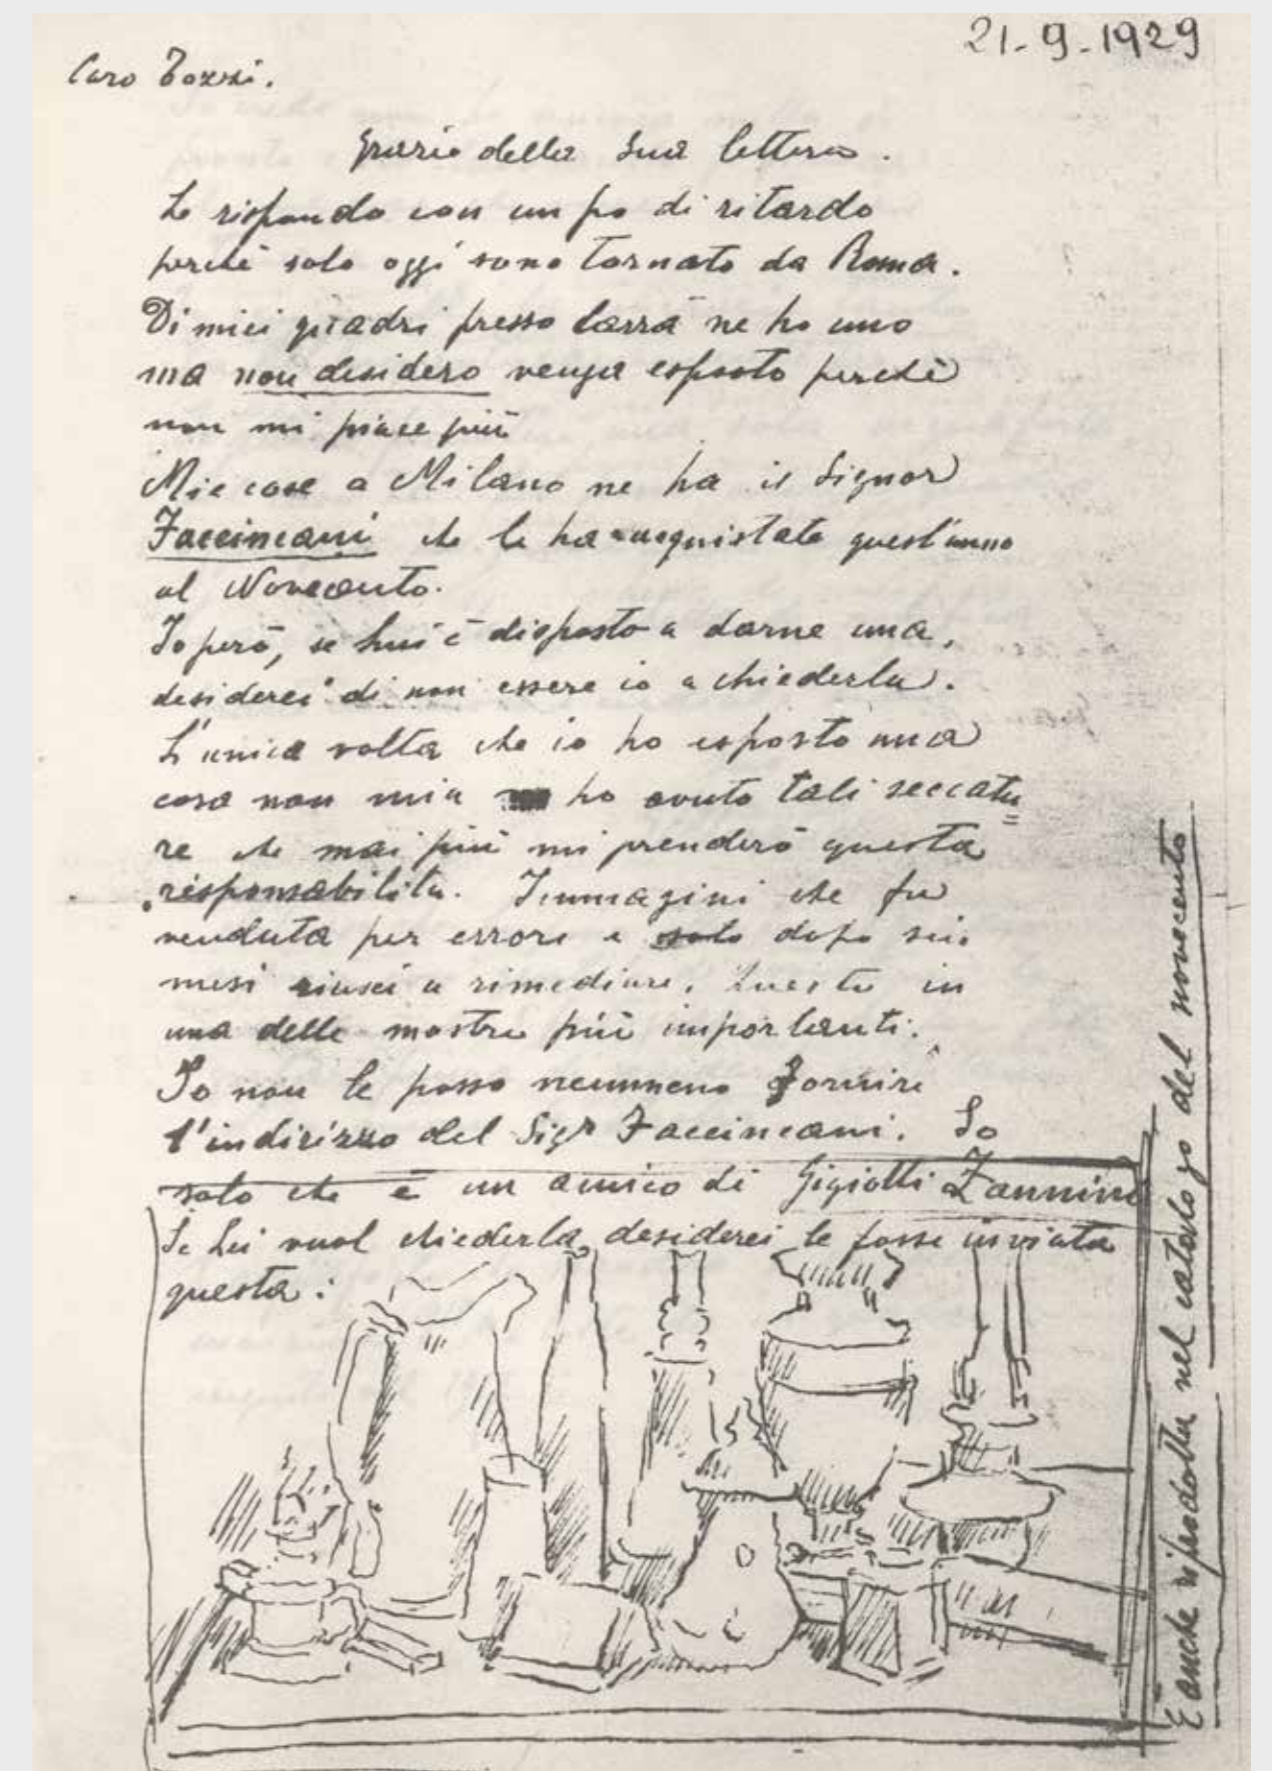 21-9-1929
Caro Tozzi.
grazie della Sua lettera.
Le rispondo con un po di ritardo
perchè solo oggi sono tornato da Roma.
Di miei quadri presso Carrà ne ho uno
ma non desidero venga esposto perchè
non mi piace più
Mie cose a Milano ne ha il Signor
Faccincani che le ha acquistate quest'anno
al Novecento.
Io però, se Lui è disposto a darne una,
desiderei di non essere io a chiederla.
L'unica volta che io ho esposto una
cosa non mia ho avuto tali seccatu
re che mai più mi prenderò questa
responsabilità. Immagini che fu
venduta per errore e solo dopo sei
mesi riuscì a rimediare. Questo in
una delle mostre più importanti.
Io non le posso nemmeno fornire
l'indirizzo del Sigr Faccincani. So
solo che è un amico di Gigiotti Zannini
Se Lei vuol chiederla desiderei le fosse inviata
questa:
È anche riprodotta nel catalogo del novecento